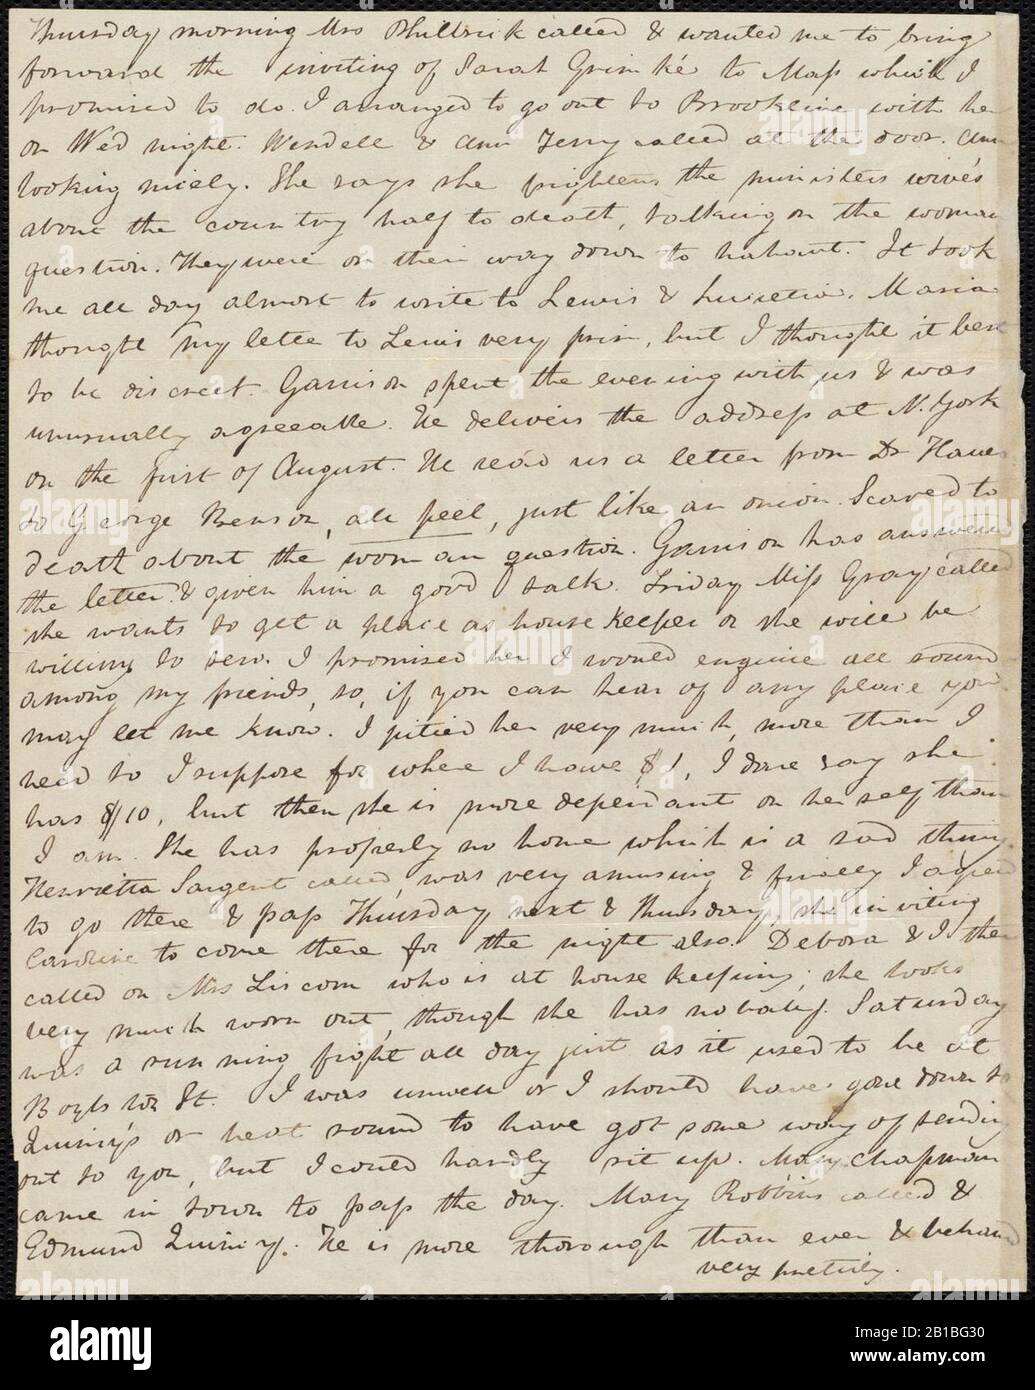 Thursday morning Mrs Philbrick called & wanted me to bring
forward the inviting of Sarah Grimké to Mass which I
promised to do. I arranged to go out to Brookline with her
on Wed night. Wendell & Ann Terry called at the door. Ann
looking nicely. She says she frightens the ministers wives
about the country half to death, talking on the woman
question. They were on their way down to Nahant. It took
me all day almost to write to Lewis & Lucretia. Maria
thought my letter to Lewis very prim, but I thought it best
to be discreet. Garrison spent the evening with us & was
unusually agreeable. He delivers the address at N. York
on the first of August. He read us a letter from Dr Hawes
to George Benson, all peel, just like an onion. Scared to
death about the woman question. Garrison has answered
the letter & given him a good talk. Friday Miss Gray called
she wants to get a place as house keeper or she will be
willing to sew. I promised her I would enquire all round
among my friends, so, if you can hear of any place you
may let me know. I pitied her very much, more than I
need to I suppose for where I have $1, I dare say she
has $10, but then she is more dependant on herself than
I am. She has properly no home which is a sad thing.
Henrietta Sargent called, was very amusing & finally I agreed
to go there & pass Thursday next & Thursday, she inviting
Caroline to come there for the night also. Debora & I then
called on Mrs Liscom who is at house keeping; she looks
very much worn out, though she has no baby. Saturday
was a running fight all day just as it used to be at
Boylston St. I was unwell or I should have gone down to
Quincy's or beat round to have got some way of sending
out to you, but I could hardly sit up. Mary Chapman
came in town to pass the day. Mary Robbins called &
Edmund Quincy. He is more thorough than ever & behaved
very prettily.
alamy
Image ID: 2B1BG30
www.alamy.com